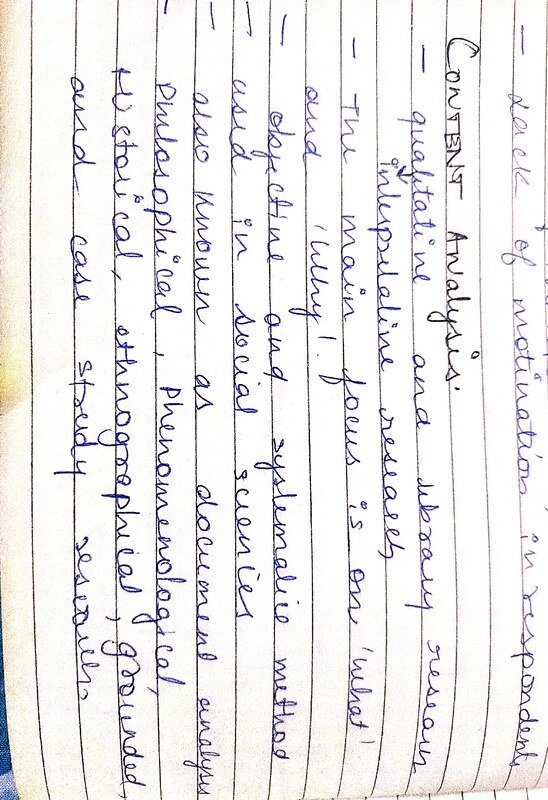 - Lack of motivation in respondents
CONTENT Analysis.
- qualitative and library research
interpretative research
- The main focus is on 'what'
and 'why'.
- objective and systematice method
- used in social sciences
- also known as document analysis
- Philosophical, Phenomenological,
Historical, ethnographical, grounded,
and case study research.